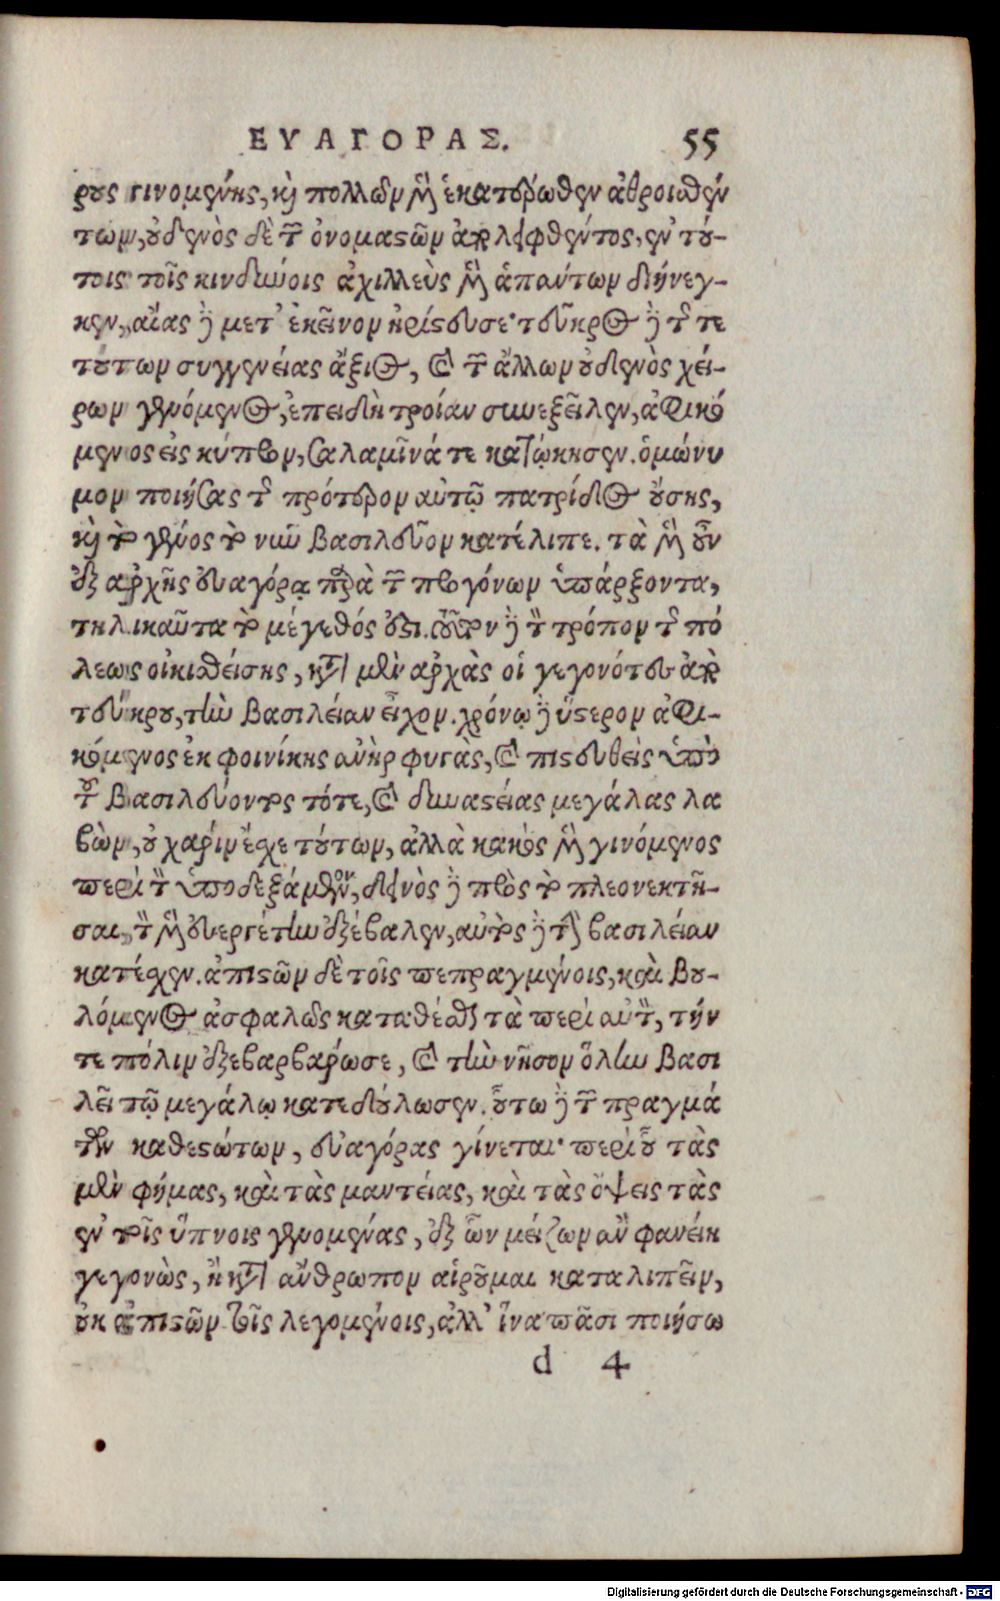 ΕΥΑΓΟΡΑΣ. 55
ρους γινομένης, καὶ πολλῶν μὲν ἑκατέρωθεν ἀθροισθέν
των, οὐδενὸς δὲ τῶν ὀνομαστῶν ἀπολειφθέντος, ἐν τού-
τοις τοῖς κινδύνοις ἀχιλλεὺς μὲν ἁπάντων διήνεγ-
κεν, αἴας δὲ μετ' ἐκεῖνον ἠρίστευσε· τεῦκρος δὲ τῆς τε
τούτων συγγενείας ἄξιος, καὶ τῶν ἄλλων οὐδενὸς χεί-
ρων γενόμενος, ἐπειδὴ τροίαν συνεξεῖλεν, ἀφικό
μενος εἰς κύπρον, σαλαμῖνά τε κατῴκησεν. ὁμώνυ
μον ποιήσας τῆς πρότερον αὐτῷ πατρίδος οὔσης,
καὶ τὸ γένος τὸ νῦν βασιλεῦον κατέλιπε. τὰ μὲν οὖν
ἐξ ἀρχῆς εὐαγόρᾳ παρὰ τῶν προγόνων ὑπάρξοντα,
τηλικαῦτα τὸ μέγεθός ἐστι. τοῦτον δὲ τὸν τρόπον τῆς πό
λεως οἰκισθείσης, κατ' μὲν ἀρχὰς οἱ γεγονότες ἀπὸ
τεύκρου, τὴν βασιλείαν εἶχον. χρόνῳ δὲ ὕστερον ἀφι-
κόμενος ἐκ φοινίκης ἀνὴρ φυγὰς, καὶ πιστευθεὶς ὑπὸ
τοῦ βασιλεύοντος τότε, καὶ δυναστείας μεγάλας λα
βὼν, οὐ χάριν ἔσχε τούτων, ἀλλὰ κακὸς μὲν γινόμενος
περὶ τὸν ὑποδεξάμενον, δεινὸς δὲ πρὸς τὸ πλεονεκτῆ-
σαι, τὸν μὲν εὐεργέτην ἐξέβαλεν, αὐτὸς δὲ τὴν βασιλείαν
κατέσχεν. ἀπιστῶν δὲ τοῖς πεπραγμένοις, καὶ βου-
λόμενος ἀσφαλῶς καταθέσθαι τὰ περὶ αὐτὸν, τήν
τε πόλιν ἐξεβαρβάρωσε, καὶ τὴν νῆσον ὅλην βασι
λεῖ τῷ μεγάλῳ κατεδούλωσεν. οὕτω δὲ τῶν πραγμά
των καθεστώτων, εὐαγόρας γίνεται· περὶ οὗ τὰς
μὲν φήμας, καὶ τὰς μαντείας, καὶ τὰς ὄψεις τὰς
ἐν τοῖς ὕπνοις γενομένας, ἐξ ὧν μείζων ἂν φανείη
γεγονὼς, ἢ κατ' ἄνθρωπον αἱροῦμαι καταλιπεῖν,
οὐκ ἀπιστῶν τοῖς λεγομένοις, ἀλλ' ἵνα πᾶσι ποιήσω
d 4
Digitalisierung gefördert durch die Deutsche Forschungsgemeinschaft - DFG